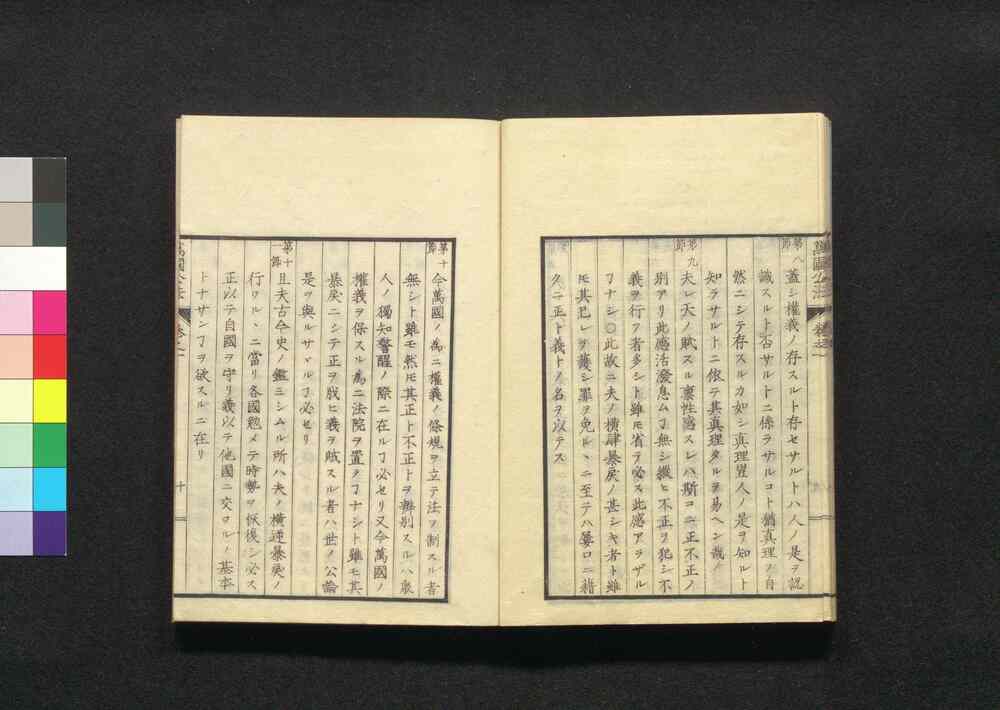 第八節
蓋シ權義ノ存スルト存セサルトハ人ノ是ヲ認
識スルト否サルトニ係ラサルコト猶真理ノ自
然ニシテ存スルカ如シ真理豈人ノ是ヲ知ルト
知ラサルトニ依テ其真理タルヲ易ヘン哉
第九節
夫レ天ノ賦スル稟性感スレハ斯コニ正不正ノ
別アリ此感活潑息ムヿ無シ纔ヒ不正ヲ犯シ不
義ヲ行フ者多シト雖モ省テ必ス此感アラザル
ヿナシ○此故ニ夫ノ横肆暴戻ノ甚シキ者ト雖
モ其犯レヲ護シ罪ヲ免ルヽニ至テハ屡ロニ藉
クニ正ト義トノ名ヲ以テス
萬國公法
卷之一
第十節
今萬國ノ爲ニ權義ノ條規ヲ立テ法ヲ制スル者
無シト雖モ然モ其正ト不正トヲ辨別スルハ衆
人ノ獨知警醒ノ際ニ在ルヿ必セリ又今萬國ノ
權義ヲ保スル爲ニ法院ヲ置クヿナシト雖モ其
暴戻ニシテ正ヲ戕ヒ義ヲ賊スル者ハ世ノ公論
是ヲ與ルサヽルヿ必セリ
第十一節
且夫古今史ノ鑑ミシムル所ハ夫ノ横逆暴戻ノ
行ワルヽニ當リ各國勉メテ時勢ヲ恢復シ必ス
正以テ自國ヲ守リ義以テ他國ニ交ワルノ基本
トナサンヿヲ欲スルニ在リ
萬國公法
卷之一
十